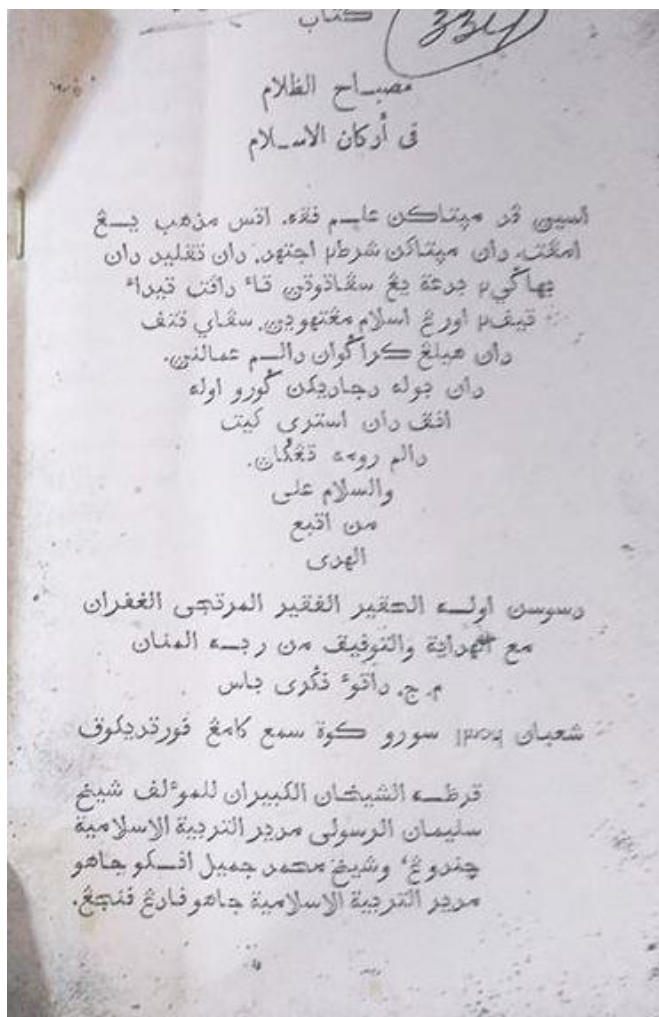 كتاب
مصباح الظلام
فى أركان الاسلام
اسين ڤد مپتاكن علم فقه. اتس مذهب يڠ
امڤت. دان مپتاكن شرط٢ اجتهد. دان تقليد دان
بهاڬي٢ بدعة يڠ
اورڠ اسلام سڤاي
دان هيلڠ كراڬوان دالم عمالنن.
دان بوله دجاديكن ڬورو اوله
انق دان استرى كيت
دالم رومه تڠڬان.
والسلام على
من اتبع
الهدى
دسوسن اوله الحقير الفقير المرتجى الغفران
مع الهداية والتوفيق من ربه المنان
م. ج. داتوء
شعبان سورو كوة
قرظه الشيخان الكبيران للموءلف شيخ
سليمان الرسولى مدير التربية الاسلامية
چندوڠ، وشيخ محمد جميل جاهو
مدير التربية الاسلامية جاهو ڤادڠ ڤنجڠ.